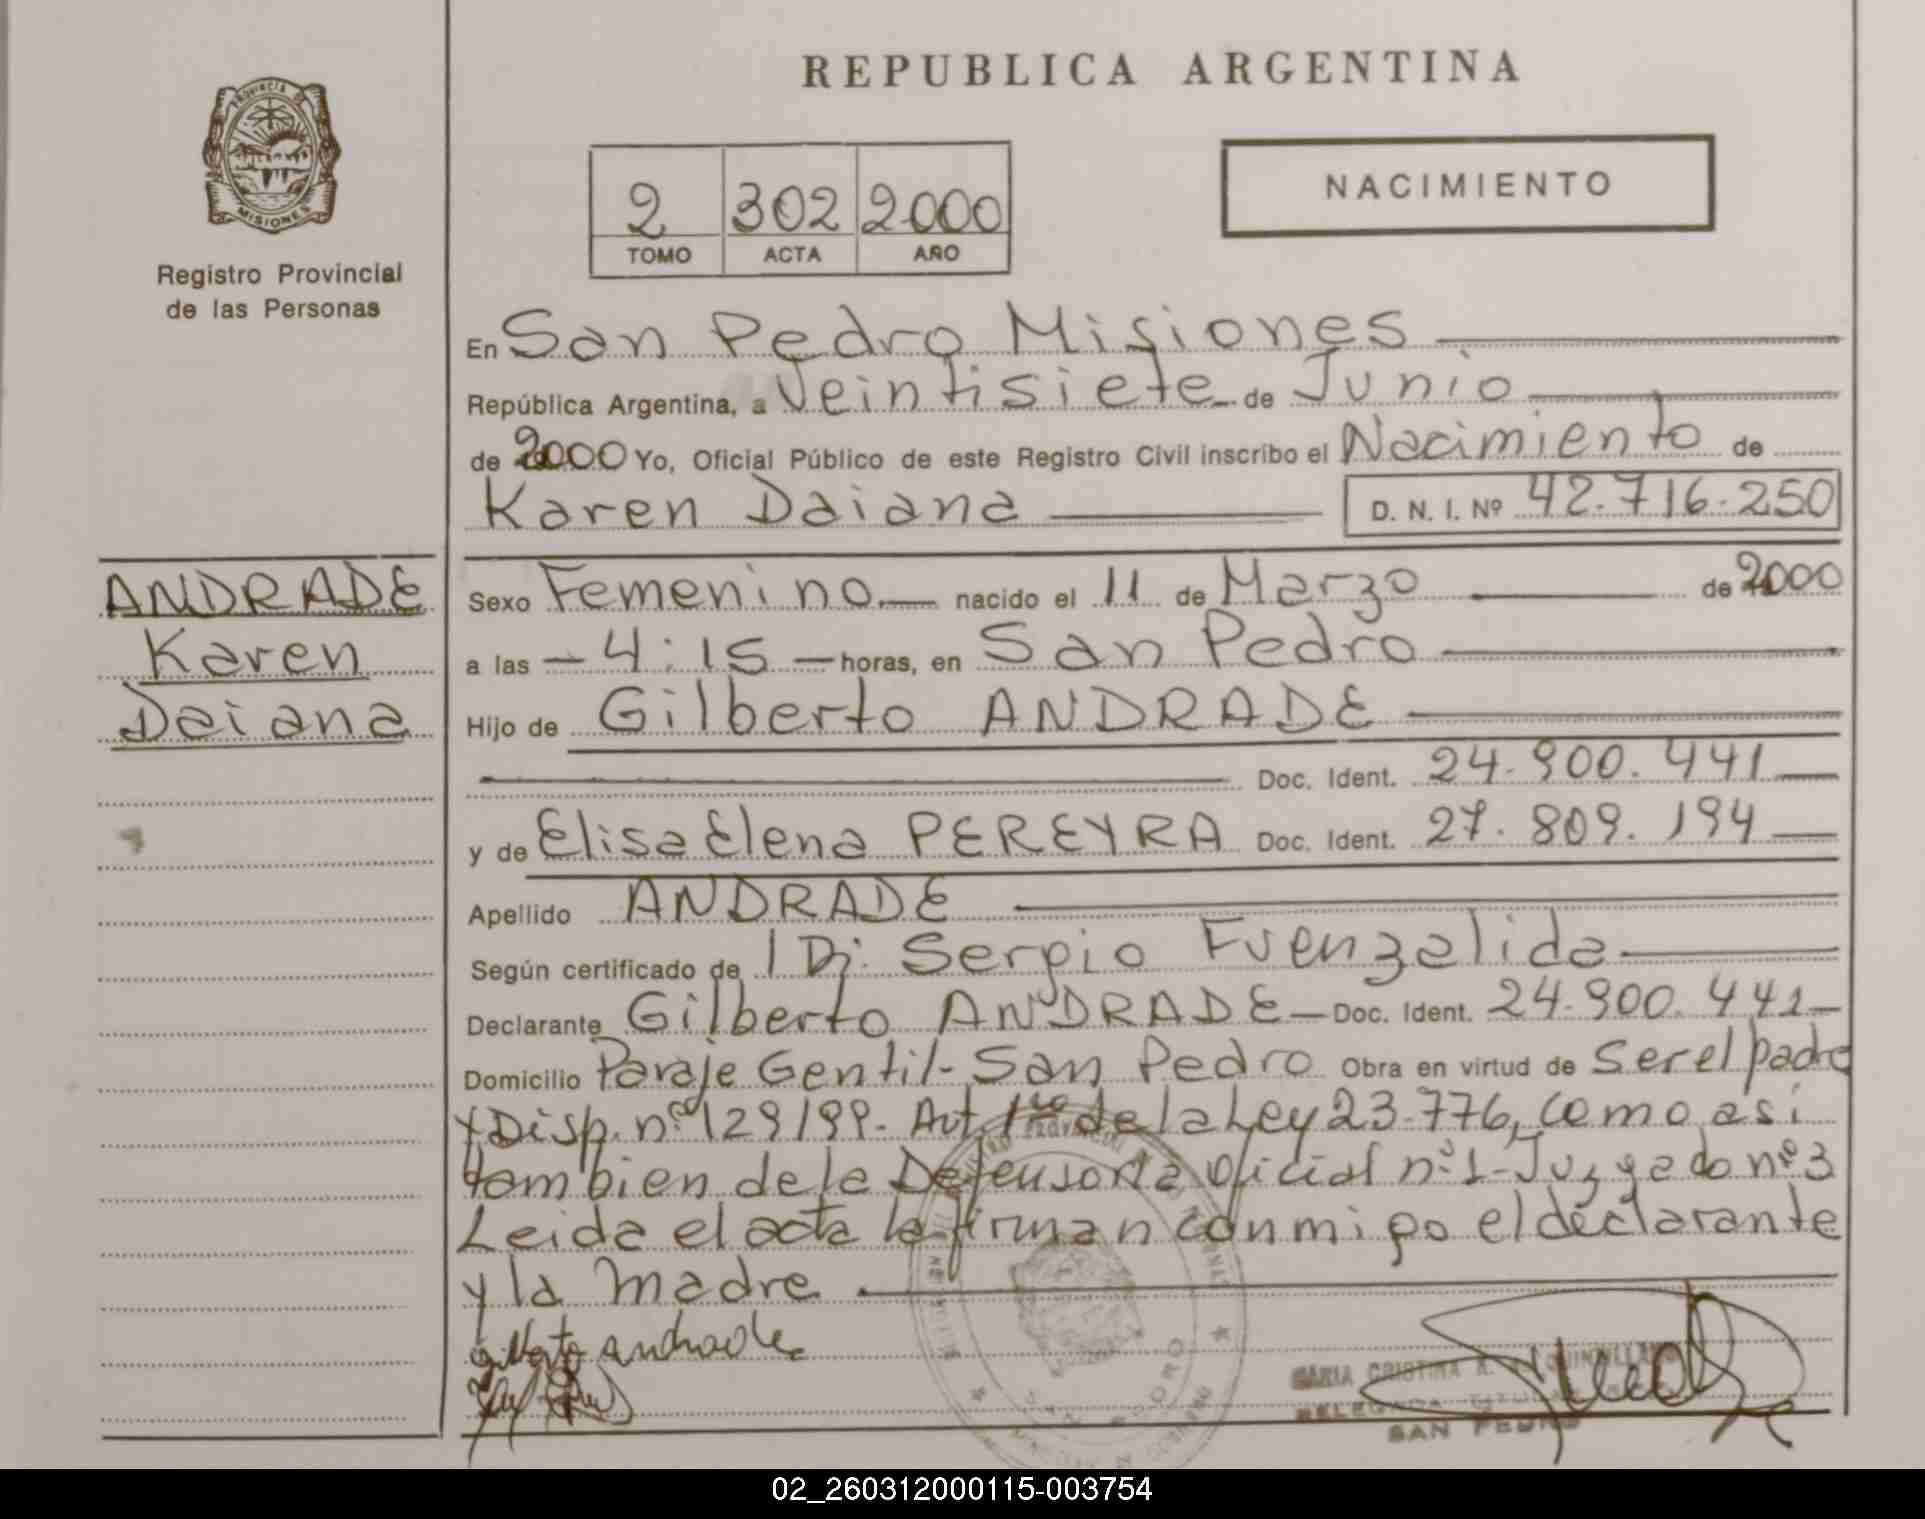 REPUBLICA ARGENTINA
PROVINCIA DE
MISIONES
Registro Provincial
de las Personas
2 302 2000
TOMO ACTA AÑO
NACIMIENTO
En San Pedro Misiones
República Argentina, a Veintisiete de Junio
de 2000 Yo, Oficial Público de este Registro Civil inscribo el Nacimiento de
Karen Daiana D. N. I. Nº 42.716.250
ANDRADE
Karen
Daiana
Sexo Femenino nacido el 11 de Marzo de 2000
a las 4:15 horas, en San Pedro
Hijo de Gilberto ANDRADE
Doc. Ident. 24.900.441
y de Elisa Elena PEREYRA Doc. Ident. 27.809.194
Apellido ANDRADE
Según certificado de Sergio Fuenzalida
Declarante Gilberto ANDRADE Doc. Ident. 24.900.441
Domicilio Paraje Gentil - San Pedro Obra en virtud de Ser el padre
y Disp. nº 129/99. Art. de la Ley 23.776, como asi
tambien de la Defensoria Oficial nº 1 - Juzgado nº 3
Leida el acta la firman conmigo el declarante
y la madre
Gilberto Andrade
MARIA CRISTINA
DELEGADA TITULAR
SAN PEDRO
SAN PEDRO
02_260312000115-003754